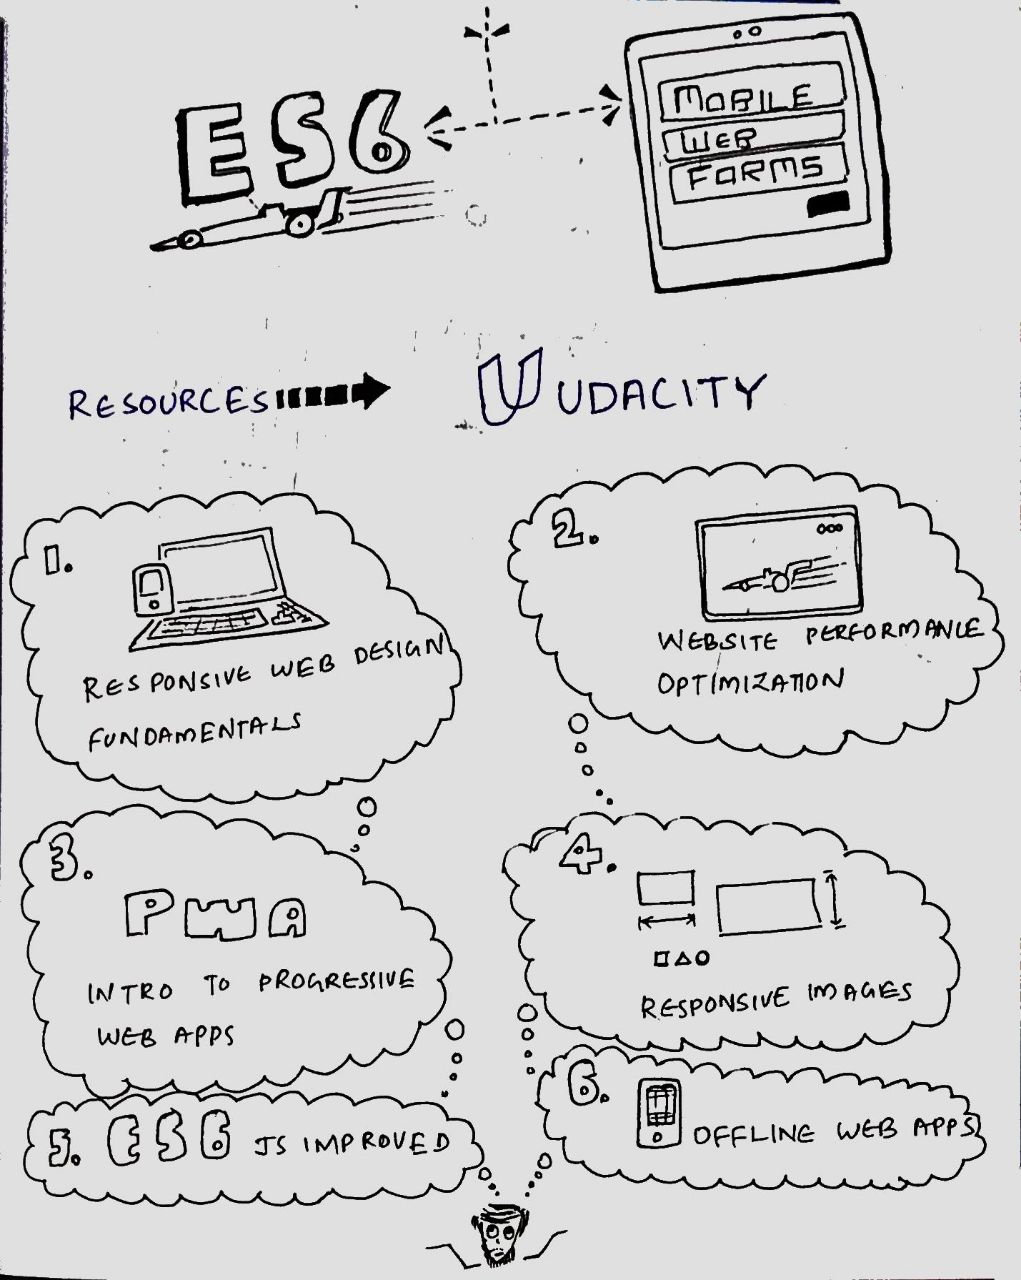 ES6
MOBILE
WEB
FORMS
RESOURCES
UDACITY
1.
RESPONSIVE WEB DESIGN
FUNDAMENTALS
2.
WEBSITE PERFORMANCE
OPTIMIZATION
3.
PWA
INTRO TO PROGRESSIVE
WEB APPS
4.
RESPONSIVE IMAGES
5. ES6 JS IMPROVED
6.
OFFLINE WEB APPS